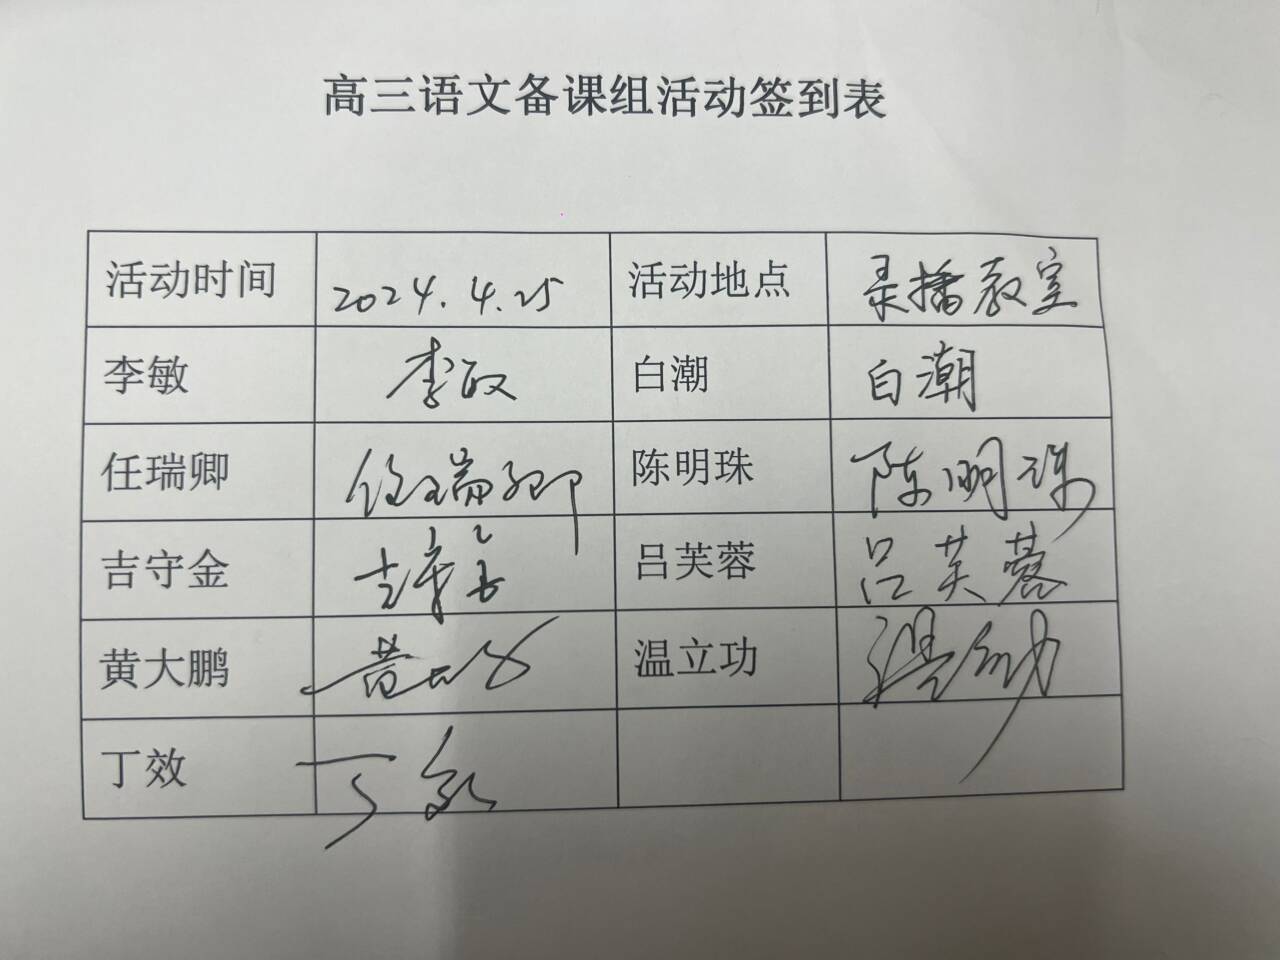 高三语文备课组活动签到表
活动时间 2024.4.25 活动地点 录播教室
李敏 李敏 白潮 白潮
任瑞卿 任瑞卿 陈明珠 陈明珠
吉守金 吉守金 吕芙蓉 吕芙蓉
黄大鹏 黄大鹏 温立功 温立功
丁效 丁效